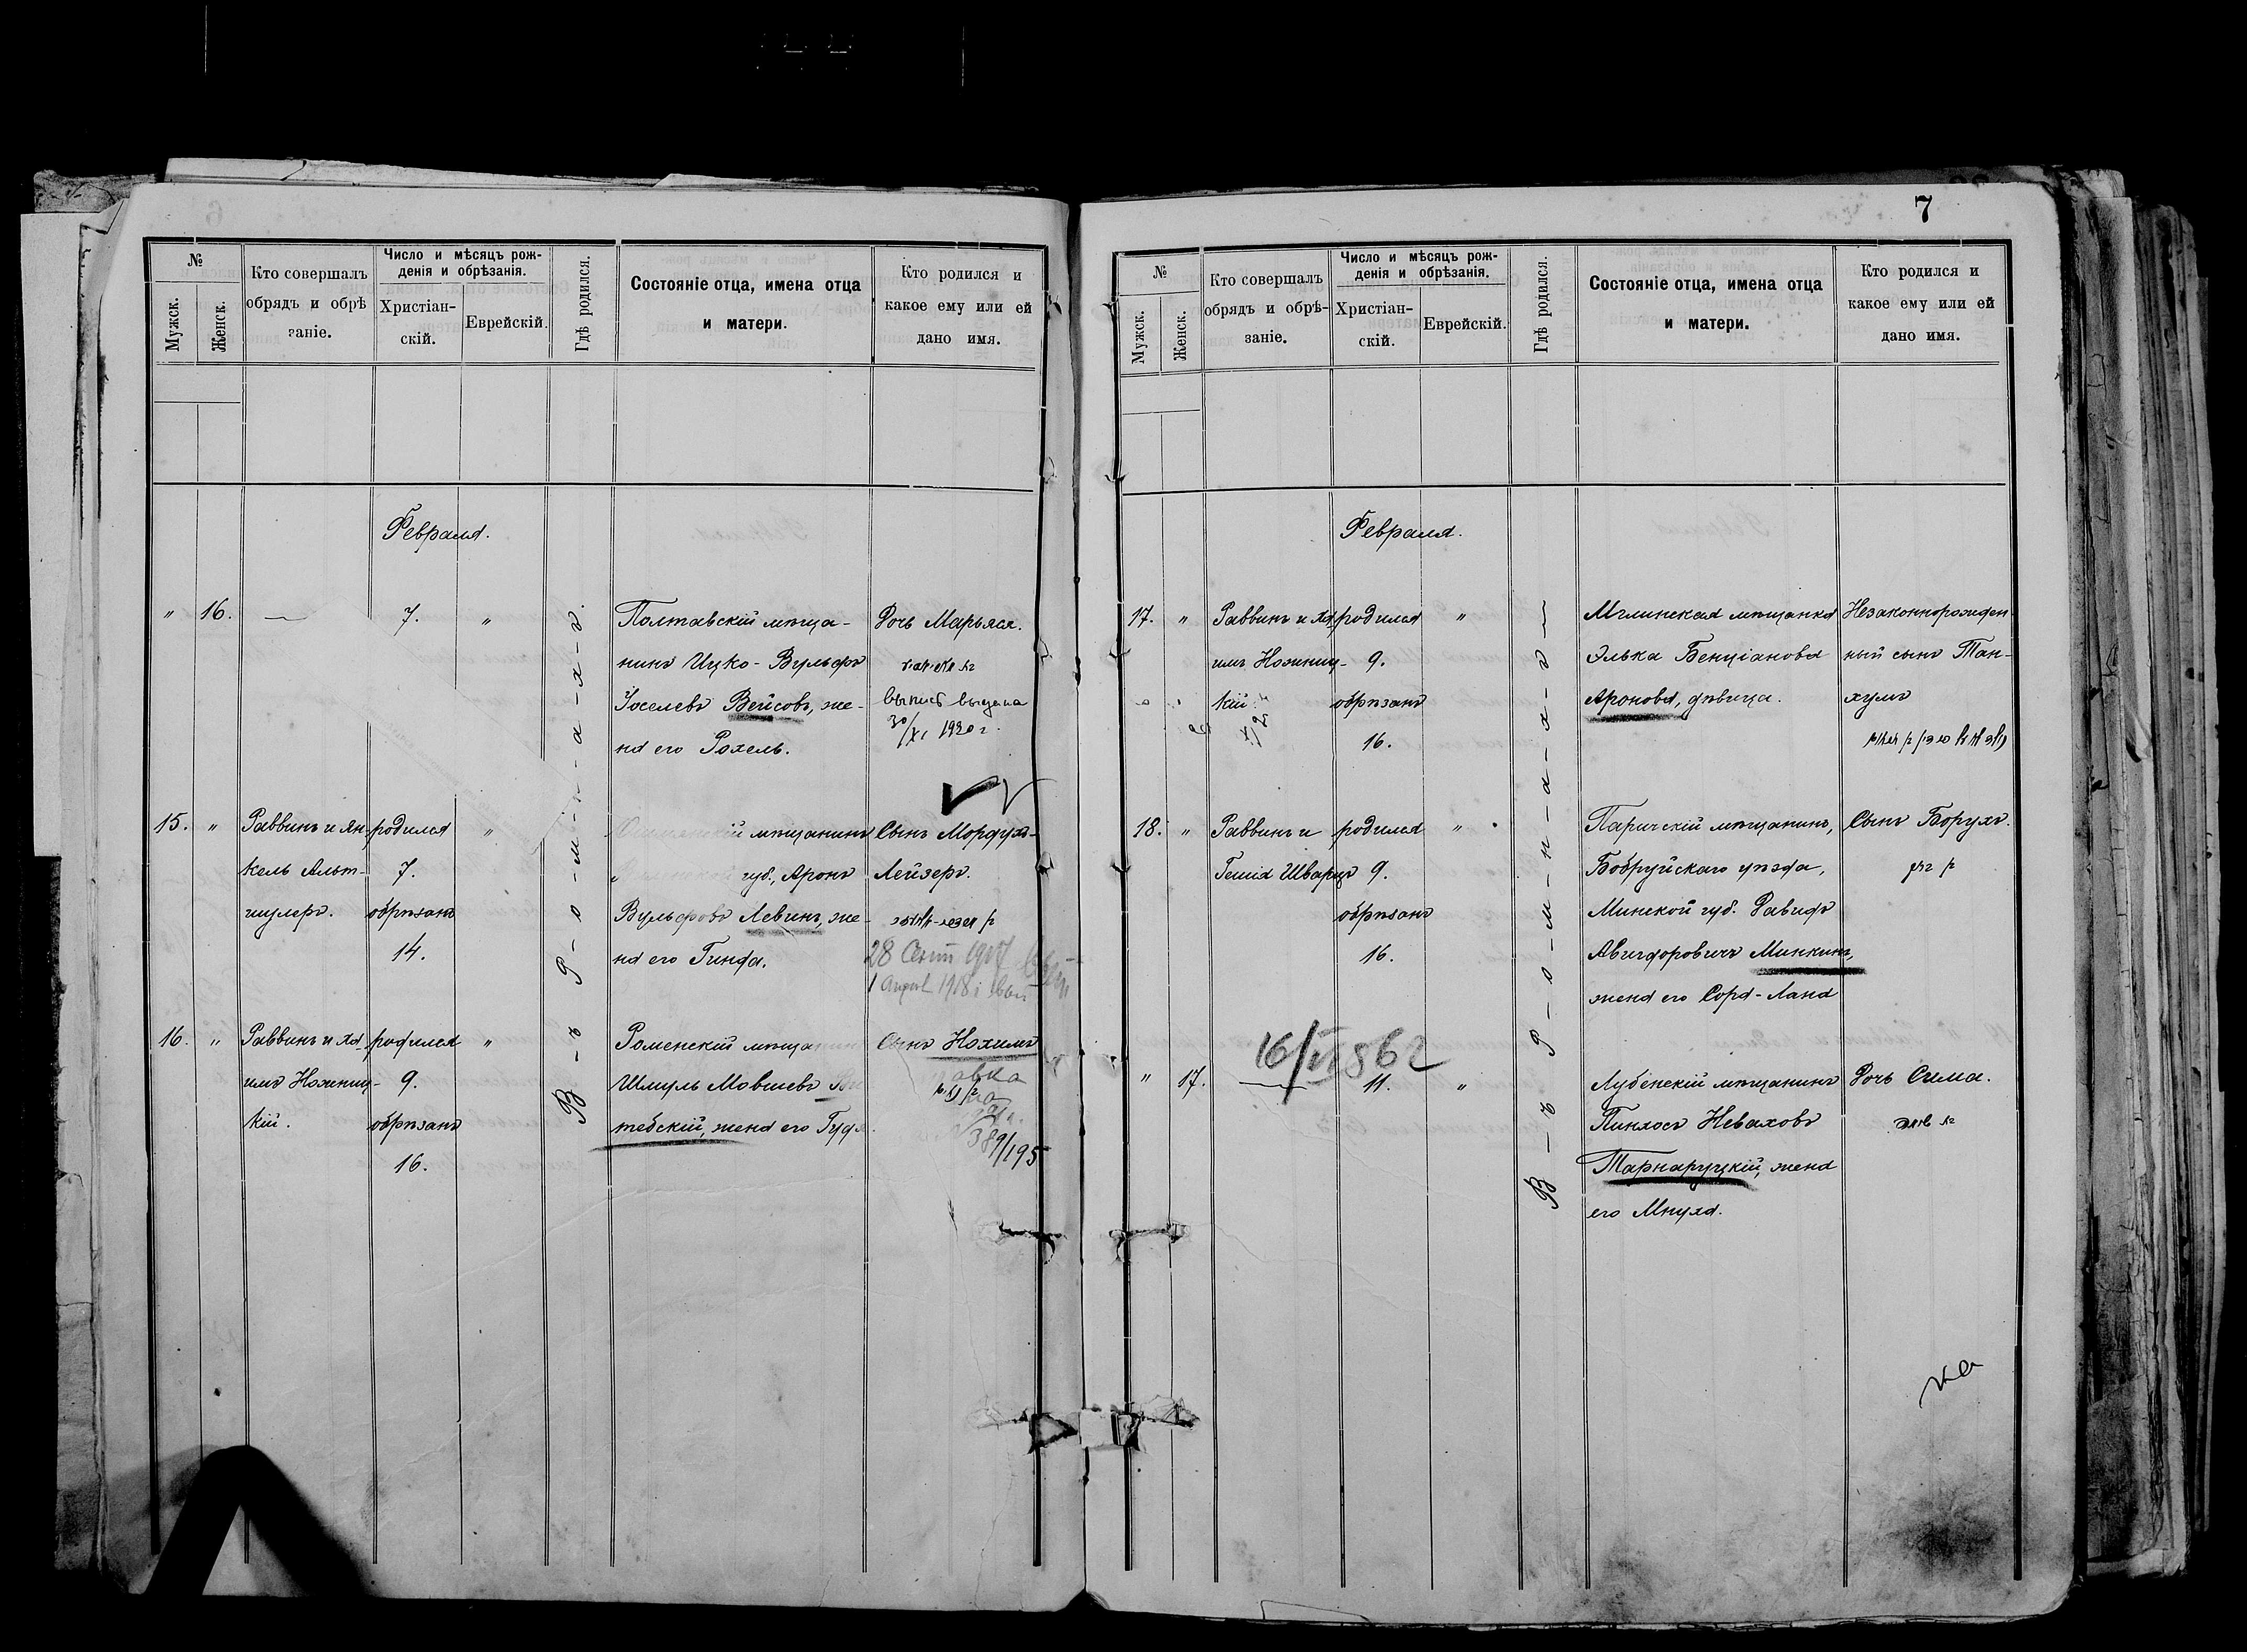 №
Мужск.
Женск.
Кто совершалъ
обрядъ и обрѣ
заніе.
Число и мѣсяцъ рож-
денія и обрѣзанія.
Христіан-
скій.
Еврейскій.
Гдѣ родился.
Состояніе отца, имена отца
и матери.
Кто родился и
какое ему или ей
дано имя.
Февраля.
В-ъ Р-о-м-н-а-х-ъ.
" 16. — 7. "
Полтавскій мѣща-
нинъ Ицко-Вульфъ
Іоселевъ Вейсовъ, же-
на его Рохель.
Дочь Марьяся.
выпись выдана
30/XI 1920 г.
15. " Раввинъ и Ян-
кель Альт-
шулеръ.
родился "
7.
обрѣзанъ
14.
мѣщанинъ
губ., Аронъ
Вульфовъ Левинъ, же-
на его Гинда.
Сынъ Мордухъ-
Лейзеръ.
28 1917
1 1918
16. " Раввинъ и Ха-
имъ Ножниц-
кій.
родился "
9.
обрѣзанъ
16.
Роменскій мѣща
Шмуль Мовшевъ
тебскій, жена его Гудя
Сынъ Нохимъ
389/195
7
№
Мужск.
Женск.
Кто совершалъ
обрядъ и обрѣ-
заніе.
Число и мѣсяцъ рож-
денія и обрѣзанія.
Христіан-
скій.
Еврейскій.
Гдѣ родился.
Состояніе отца, имена отца
и матери.
Кто родился и
какое ему или ей
дано имя.
Февраля.
В-ъ Р-о-м-н-а-х-ъ—
17. " Раввинъ и Ха-
имъ Ножниц-
кій
родился "
9.
обрѣзанъ
16.
Мглинская мѣщанка
Элька Бенціанова
Аронова, дѣвица.
Незаконнорожден-
ный сынъ Тан-
хумъ
18. " Раввинъ и
Гешія Шварцъ
родился "
9.
обрѣзанъ
16.
Паричскій мѣщанинъ,
Бобруйскаго уѣзда,
Минской губ. Давидъ
Авигдоровичъ Минкинъ,
жена его Сора-Лана
Сынъ Борухъ.
16/VI 862
" 17. — 11. "
Лубенскій мѣщанинъ
Пинхосъ Неваховъ
Тарнаруцкій, жена
его Мнуха.
Дочь Сима.